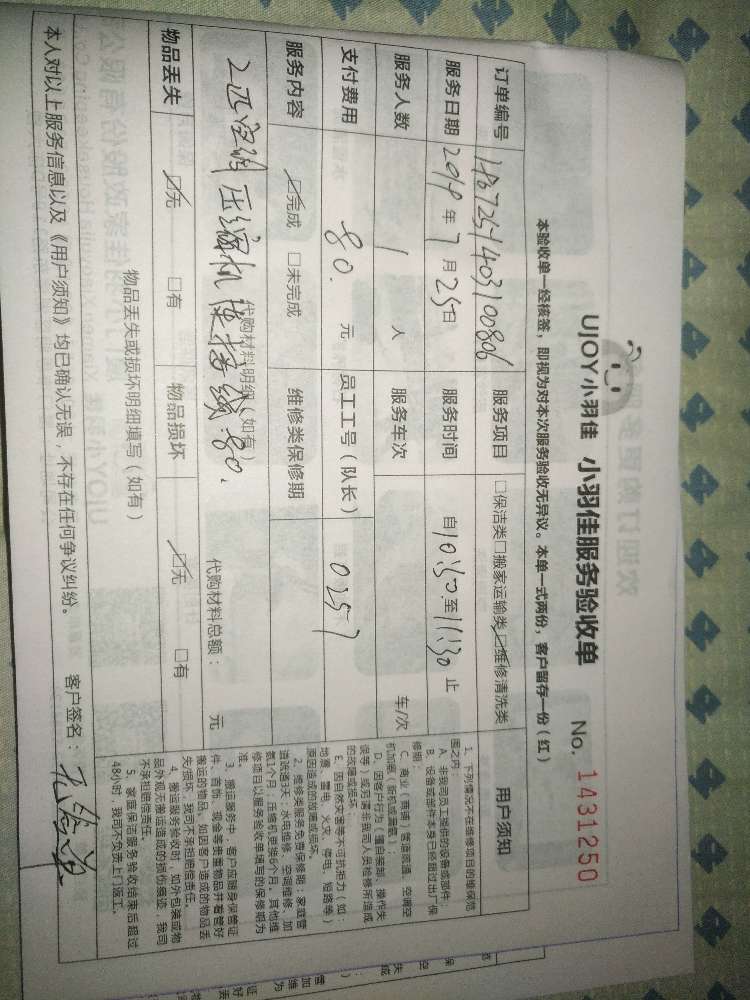 UJOY小羽佳 小羽佳服务验收单 No. 1431250
本验收单一经核签，即视为对本次服务验收无异议。本单一式两份，客户留存一份（红）
订单编号 服务项目 □保洁类□搬家运输类☑维修清洗类
服务日期 2019年7月25日 服务时间 自10:30至11:30止
服务人数 1人 服务车次 车/次
支付费用 80.元 员工工号（队长） 0257
服务内容 ☑完成 □未完成 维修类保修期
代购材料明细（如有） 代购材料总额： 元
2匹 压缩机 接线:80.
物品丢失 ☑无 □有 物品损坏 ☑无 □有
物品丢失或损坏明细填写（如有）
本人对以上服务信息以及《用户须知》均已确认无误，不存在任何争议纠纷。 客户签名：
用户须知
1、下列情况不在维修项目的维保范
围之内：
A、非我司员工提供的设备或部件；
B、设备或部件本身已经超过出厂保
修期；
D、因客户行为（擅自装卸、操作失
误等）或另请非我司人员检修所造成
的故障或损坏；
E、因自然灾害等不可抗拒力（如：
地震、雷电、火灾、停电、短路等）
原因造成的故障或损坏。
2、维修类服务免费保修期：家庭管
道疏通3天；水电维修、空调维修、加
氨1个月；压缩机更换6个月；其他维
修项目以服务验收单填写的保修期为
准。
3、搬运服务中，客户应随身保管证
件、首饰、现金等贵重物品并看管好
搬运的物品，如因客户造成的物品丢
失/损坏，我司不承担赔偿责任。
4、搬运服务验收时，如外包装或物
品外观无搬运造成的损伤痕迹，我司
不承担赔偿责任。
5、家庭保洁服务验收结束后超过
48小时，我司不负责上门返工。